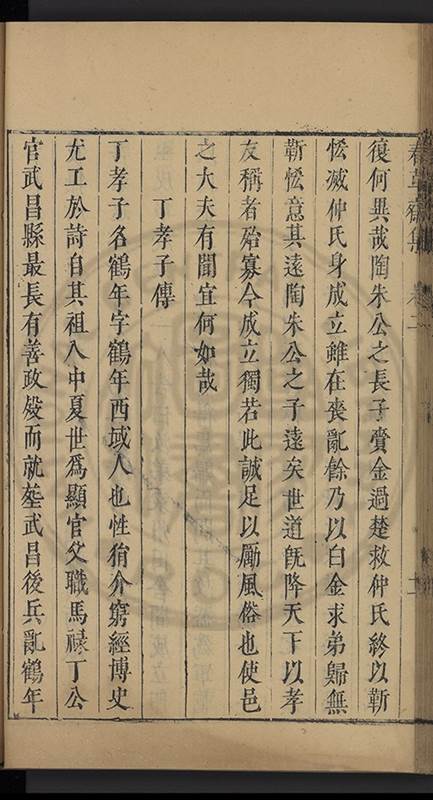 復何異哉陶朱公之長子賫金過楚救仲氏終以靳
恡滅仲氏身成立雖在喪亂餘乃以白金求弟歸無
靳恡意其遠陶朱公之子遠矣世道旣降天下以孝
友稱者殆寡今成立獨若此誠足以勵風俗也使邑
之大夫有聞宜何如哉
丁孝子傳
丁孝子名鶴年字鶴年西域人也性狷介窮經博史
尤工於詩自其祖入中夏世爲顯官父職馬祿丁公
官武昌縣最長有善政歿而就塟武昌後兵亂鶴年